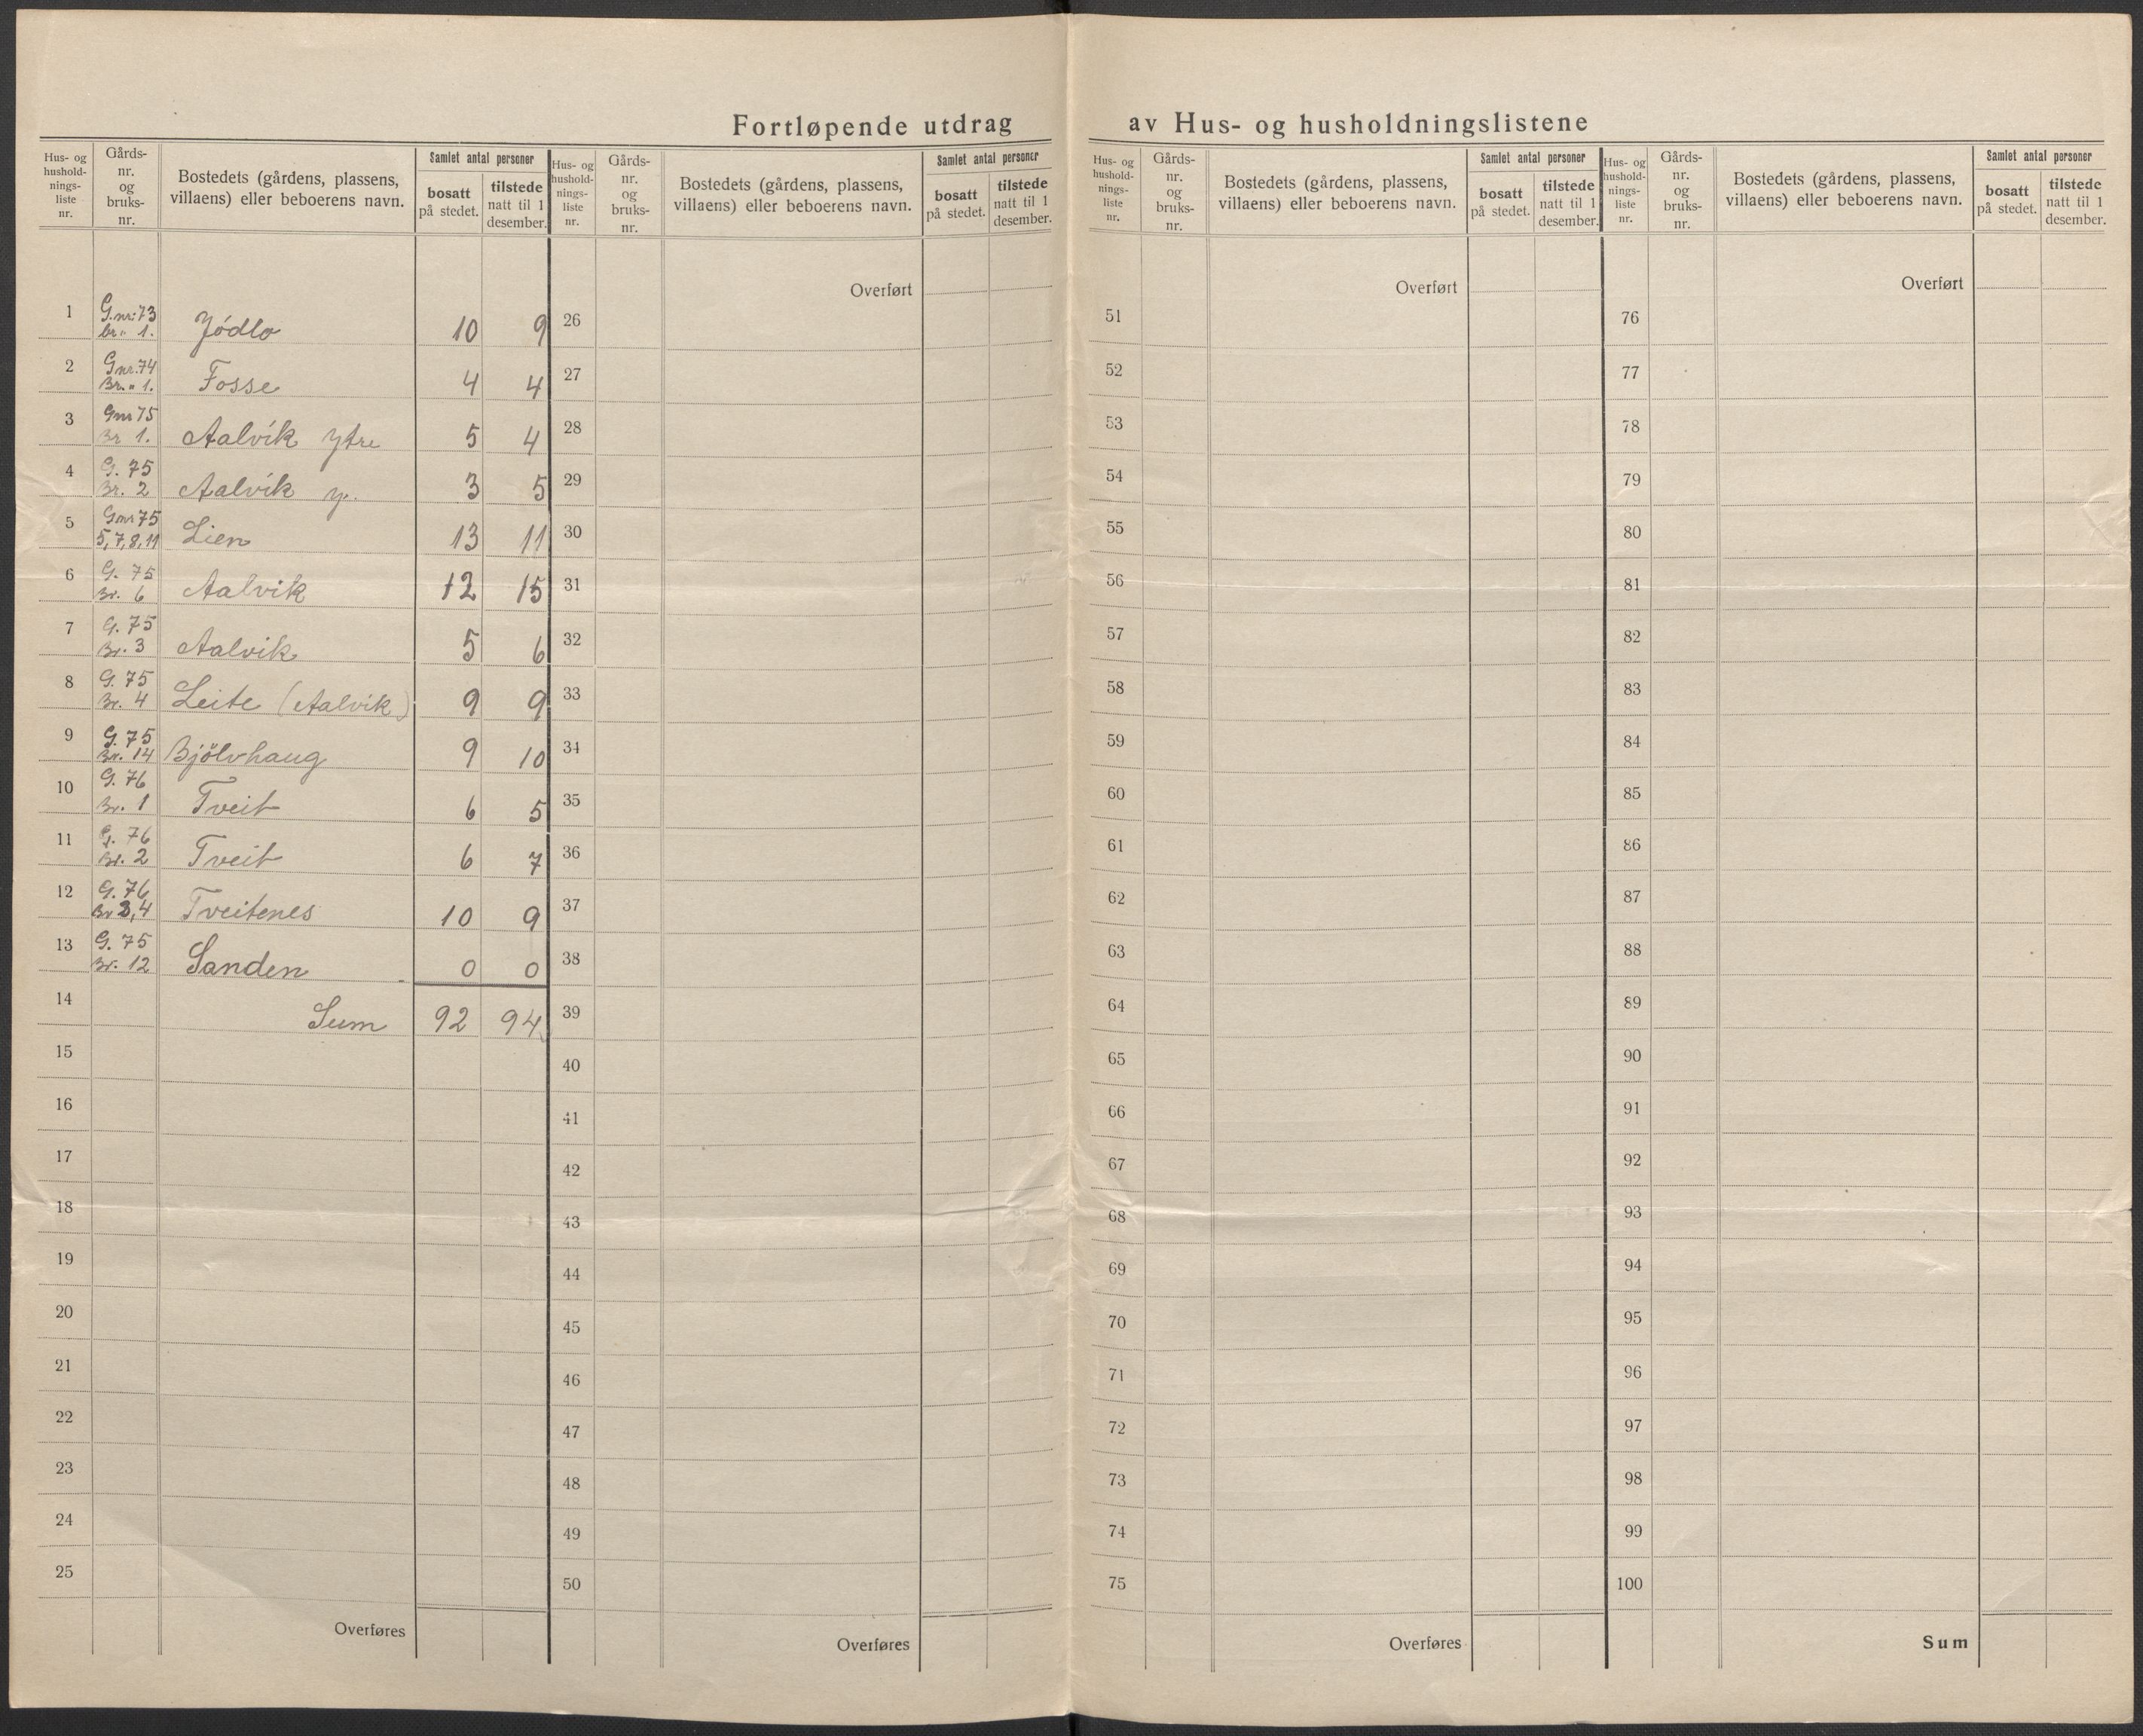 Fortløpende utdrag av Hus- og husholdningslistene
Hus- og hushold-nings-liste nr. Gårds-nr. og bruks-nr. Bostedets (gårdens, plassens, villaens) eller beboerens navn. Samlet antal personer bosatt på stedet. tilstede natt til 1 desember.
1 G.nr: 73 br. " 1. Jódlo 10 9
2 Gnr. 74 Br. " 1. Fosse 4 4
3 Gnr 75 Br 1. Aalvik ytre 5 4
4 G. 75 Br. 2 Aalvik y. 3 5
5 Gnr 75 5, 7, 8, 11 Lien 13 11
6 G. 75 Br. 6 Aalvik 12 15
7 G. 75 Br. 3 Aalvik 5 6
8 G. 75 Br. 4 Leite (Aalvik) 9 9
9 G. 75 Br. 14 Bjölvhaug 9 10
10 G. 76 Br. 1 Tveit 6 5
11 G. 76 Br. 2 Tveit 6 7
12 G. 76 Br 3, 4 Tveitenes 10 9
13 G. 75 Br. 12 Sanden 0 0
14 Sum 92 94
15
16
17
18
19
20
21
22
23
24
25
Overføres
Hus- og hushold-nings-liste nr. Gårds-nr. og bruks-nr. Bostedets (gårdens, plassens, villaens) eller beboerens navn. Samlet antal personer bosatt på stedet. tilstede natt til 1 desember.
Overført
26
27
28
29
30
31
32
33
34
35
36
37
38
39
40
41
42
43
44
45
46
47
48
49
50
Overføres
Hus- og hushold-nings-liste nr. Gårds-nr. og bruks-nr. Bostedets (gårdens, plassens, villaens) eller beboerens navn. Samlet antal personer bosatt på stedet. tilstede natt til 1 desember.
Overført
51
52
53
54
55
56
57
58
59
60
61
62
63
64
65
66
67
68
69
70
71
72
73
74
75
Overføres
Hus- og hushold-nings-liste nr. Gårds-nr. og bruks-nr. Bostedets (gårdens, plassens, villaens) eller beboerens navn. Samlet antal personer bosatt på stedet. tilstede natt til 1 desember.
Overført
76
77
78
79
80
81
82
83
84
85
86
87
88
89
90
91
92
93
94
95
96
97
98
99
100
Sum